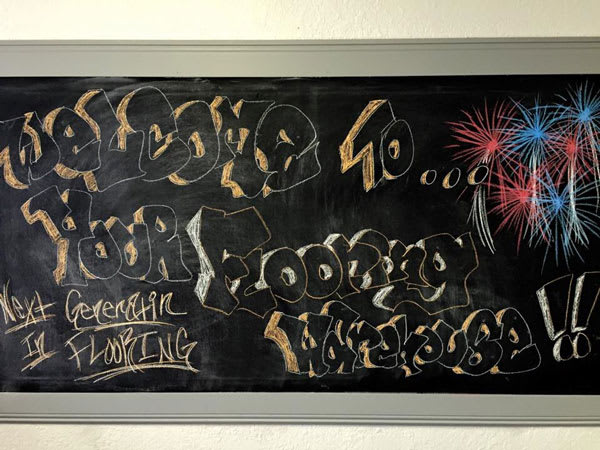 Welcome To...
Your Flooring
Warehouse!!
Next Generatin
In FLOORING